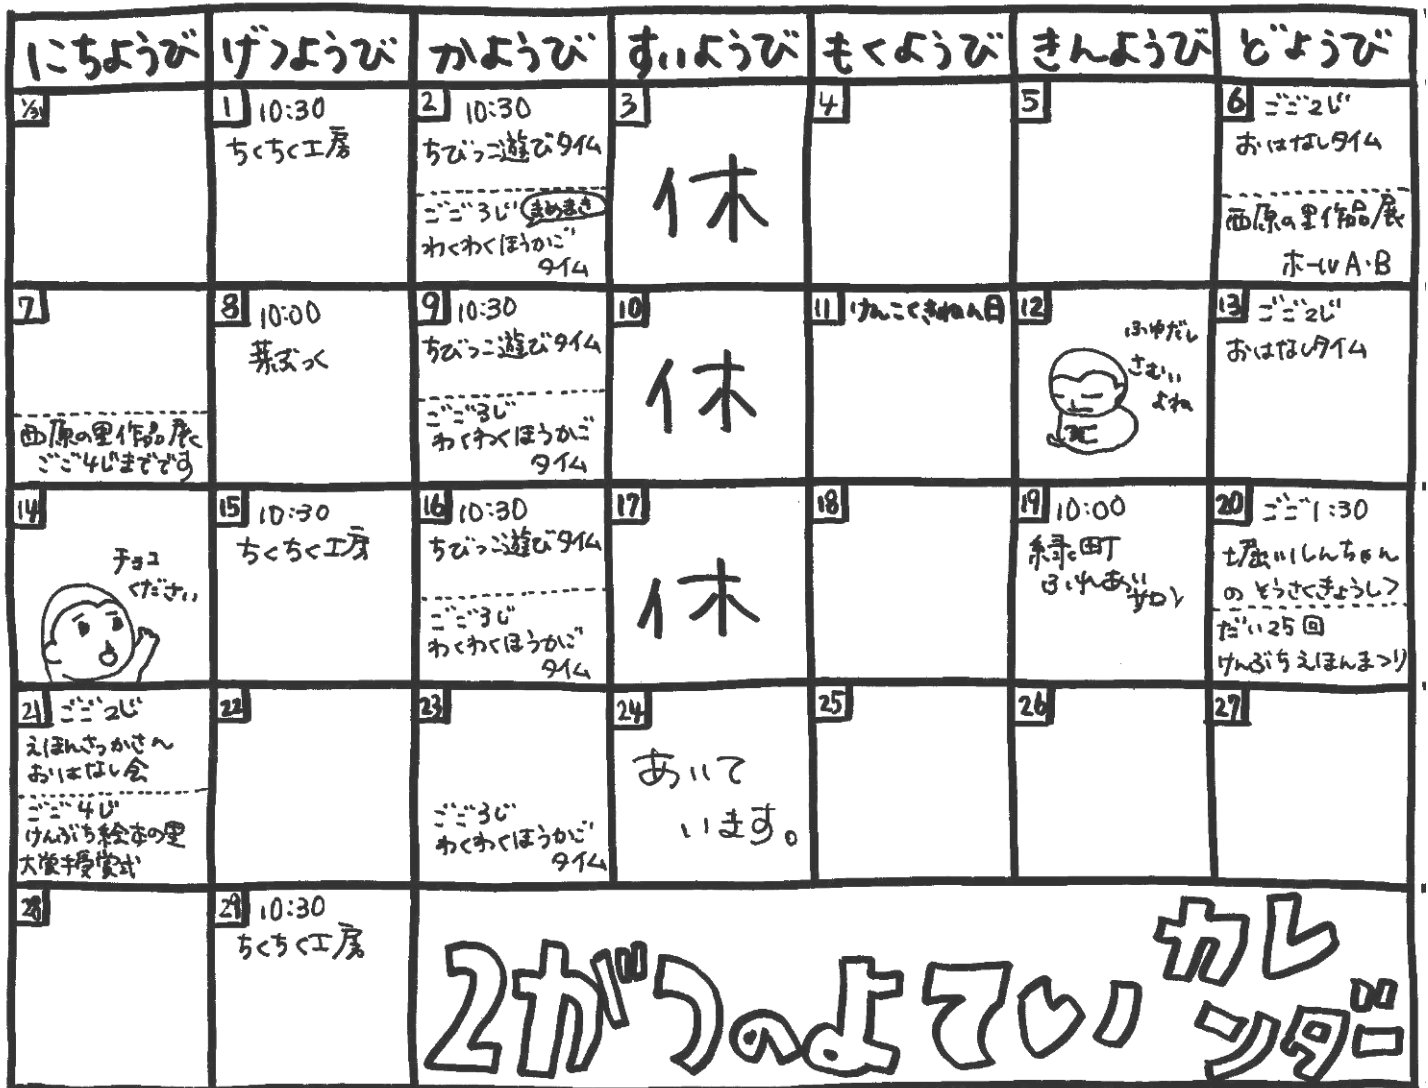 にちようび げつようび かようび すいようび もくようび きんようび どようび
1/31
1 10:30
ちくちく工房
2 10:30
ちびっこ遊びタイム
ごご3じ まめまき
わくわくほうかご
タイム
3
休
4
5
6 ごご2じ
おはなしタイム
西原の里作品展
ホールA・B
7
西原の里作品展
ごご4じまでです
8 10:00
芽ぶっく
9 10:30
ちびっこ遊びタイム
ごご3じ
わくわくほうかご
タイム
10
休
11 けんこくきねん日
12
ふゆだし
さむい
よね
13 ごご2じ
おはなしタイム
14
チョコ
ください
15 10:30
ちくちく工房
16 10:30
ちびっこ遊びタイム
ごご3じ
わくわくほうかご
タイム
17
休
18
19 10:00
緑町
ふれあい
サロン
20 ごご1:30
堀いしんちゃん
の そうさくきょうしつ
だい25回
けんぶちえほんまつり
21 ごご2じ
えほんさっかさん
おはなし会
ごご4じ
けんぶち絵本の里
大賞授賞式
22
23
ごご3じ
わくわくほうかご
タイム
24
あいて
います。
25
26
27
28
29 10:30
ちくちく工房
2がつのよてい カレ
ンダー